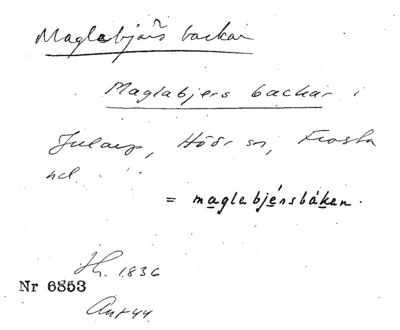 Maglebjärs backar
Maglabjers backar i
Jularp, Höörs sn, Frosta
hd.
= maglebjérsbákan.
Jh. 1836
Nr 6853
Ant 44